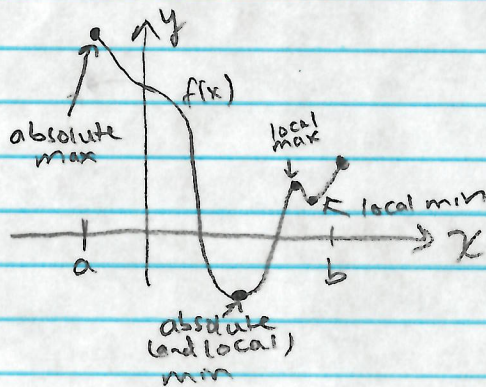 y
f(x)
absolute
max
local
max
local min
x
a
b
absolute
(and local)
min